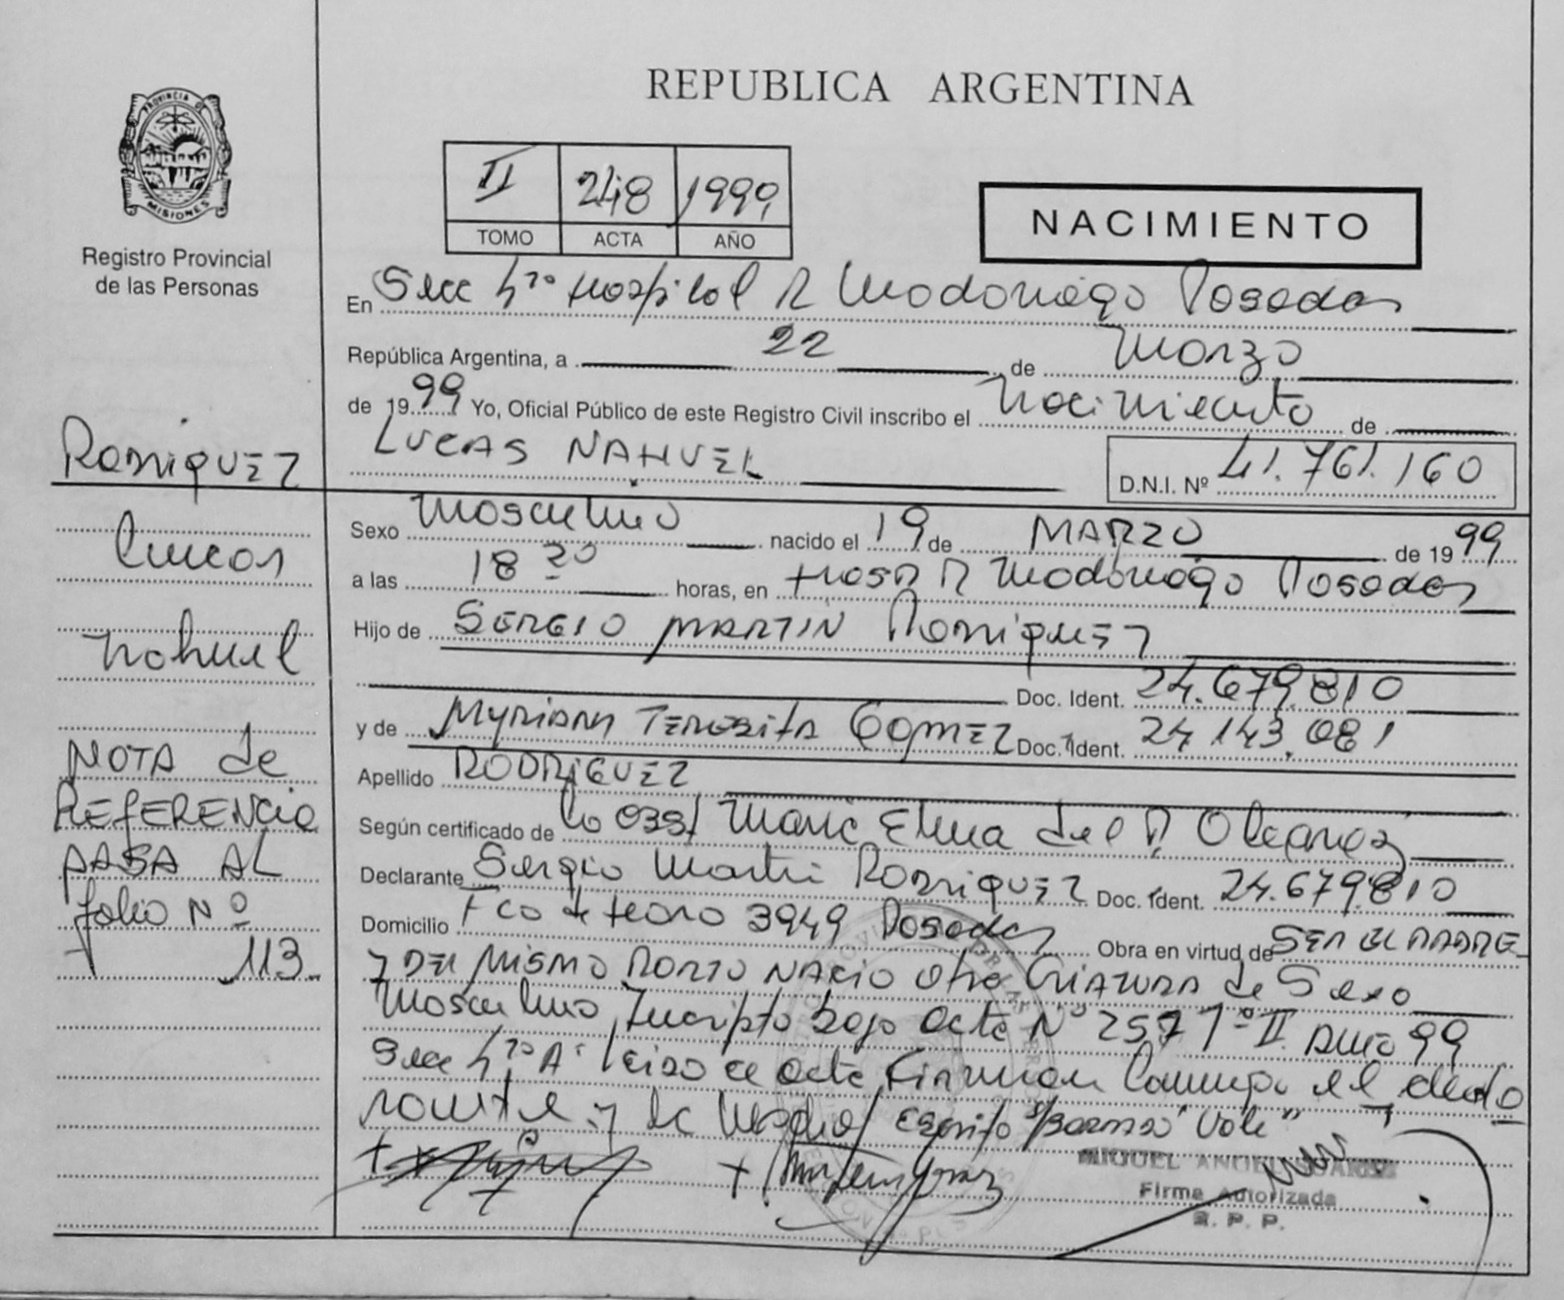 REPUBLICA ARGENTINA
PROVINCIA DE
MISIONES
Registro Provincial
de las Personas
II 248 1999
TOMO ACTA AÑO
NACIMIENTO
En Secc 4ta Hospital R Madariaga Posadas
República Argentina, a 22 de Marzo
de 1999 Yo, Oficial Público de este Registro Civil inscribo el Nacimiento de
LUCAS NAHUEL
D.N.I. Nº 41.761.160
Sexo Masculino nacido el 19 de MARZO de 1999
a las 18 20 horas, en Hosp R Madariaga Posadas
Hijo de SERGIO MARTIN RODRIGUEZ
Doc. Ident. 24.679.810
y de MYRIAM TERESITA GOMEZ Doc. Ident. 24.143.081
Apellido RODRIGUEZ
Según certificado de la Obst Maria Elena del
Declarante Sergio Martin RODRIGUEZ Doc. Ident. 24.679.810
Domicilio Fco de Haro 3949 Posadas Obra en virtud de SER EL PADRE
y DEL MISMO PARTO NACIO otra CRIATURA de Sexo
Masculino Inscripto bajo Acta Nº 257 Tº II Año 99
Secc 4ta A. Leida el acta Firman Conmigo el decla
rante y la Madre/ Escrito s/Borrado "Vale"
MIGUEL ANGEL
Firma Autorizada
R. P. P.
RODRIGUEZ
Lucas
Nahuel
NOTA de
REFERENCIA
PASA AL
folio Nº
113